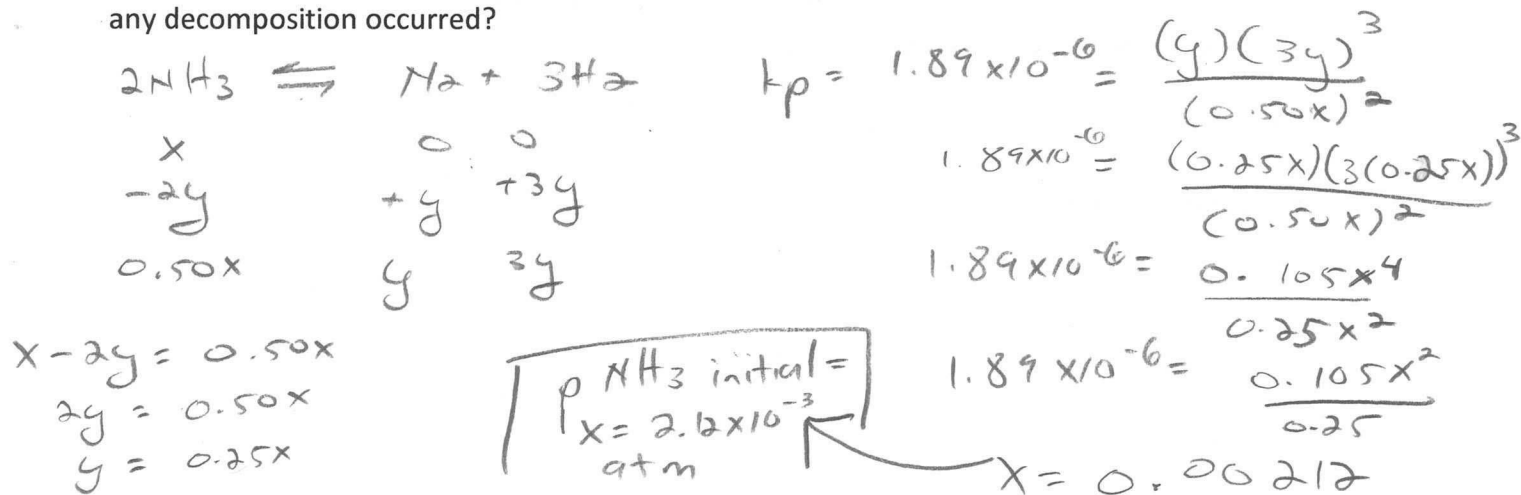 any decomposition occurred?
2NH₃ ⇌ N₂ + 3H₂
x 0 0
-2y +y +3y
0.50x y 3y
x - 2y = 0.50x
2y = 0.50x
y = 0.25x
kp = 1.89 x10⁻⁶ = (y)(3y)³ / (0.50x)²
1.89x10⁻⁶ = (0.25x)(3(0.25x))³ / (0.50x)²
1.89x10⁻⁶ = 0.105x⁴ / 0.25x²
1.89 x10⁻⁶ = 0.105x² / 0.25
x = 0.00212
P NH₃ initial =
x = 2.12x10⁻³
atm